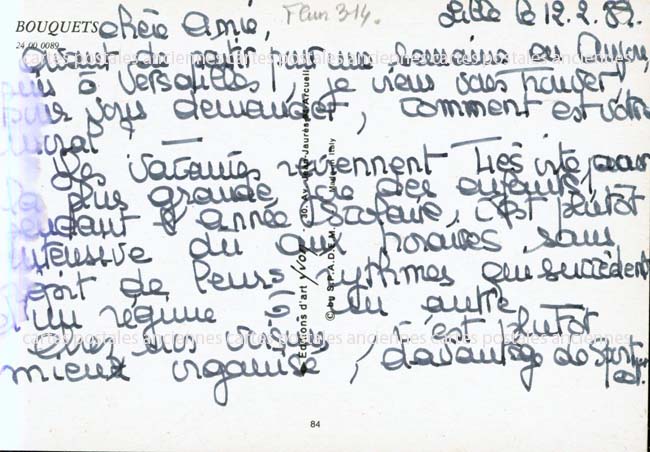 Fleurs 314.
BOUQUETS
24 00 0089
Lille le 12.2.89.
chère Amie,
Avant de partir pour une semaine en Anjou,
puis à Versailles, je viens vous trouver,
pour vous demander, comment est votre
moral
Les vacances reviennent très vite pour
la plus grande joie des enfants,
pendant l'année scolaire, c'est plutôt
intensive du aux horaires, sans
de leurs rythmes qui succèdent
d'un régime à un autre.
Chez nos voisins, c'est plutôt
mieux organisé, davantage de sport
Editions d'art Yvon - 30, Av. Jean-Jaurès - Arcueil
© by S.P.A.D.E.M. Made in Italy
cartes postales anciennes cartes postales anciennes cartes postales anciennes
cartes postales anciennes cartes postales anciennes cartes postales anciennes
84